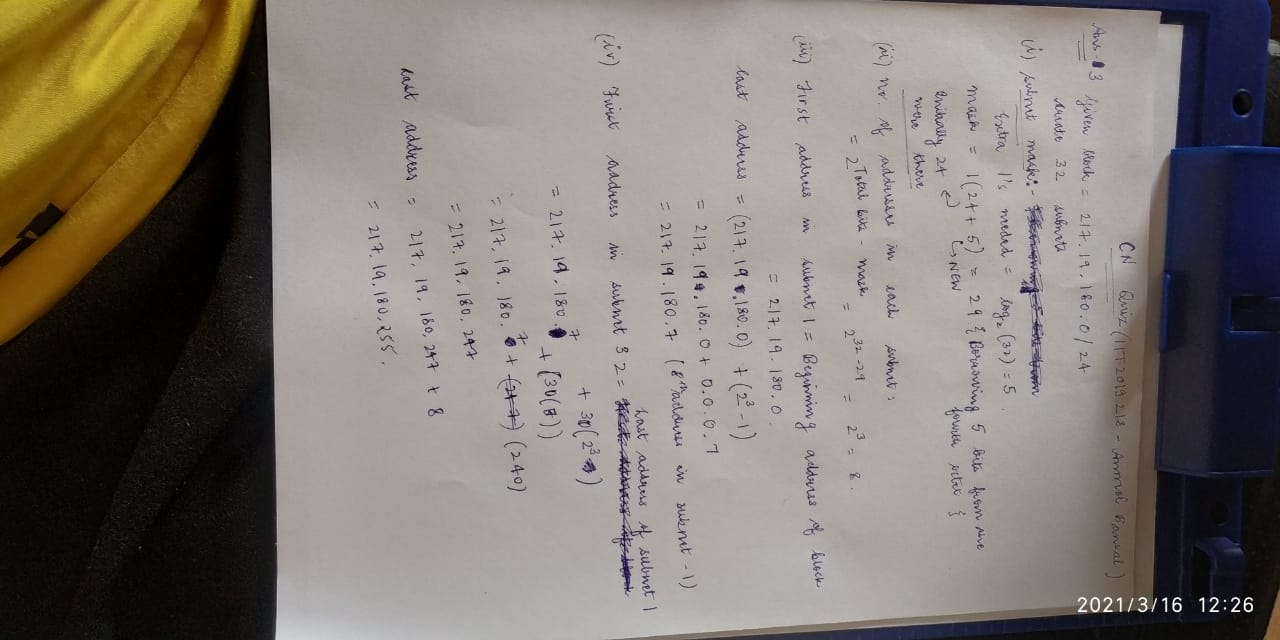 2021/3/16 12:26
CN Quiz (IIT2019218 - Anmol Bansal)
Ans-3 Given block = 217.19.180.0/24
create 32 subnets
(i) subnet mask:-
Extra 1's needed = log₂(32) = 5.
mask = 1(24+5) = 29 { Borrowing 5 bits from the
Initially 24 NEW fourth octet }
were there
(ii) No. of addresses in each subnet:
= 2^Total bits - mask = 2^32-29 = 2^3 = 8.
(iii) First address in subnet 1 = Beginning address of block
= 217.19.180.0
last address = (217.19.180.0) + (2^3-1)
= 217.19.180.0 + 0.0.0.7
= 217.19.180.7 (8th address in subnet-1)
(iv) First address in subnet 32 = Last address of subnet 1
+ 30(2^3)
= 217.19.180.7 + (30(8))
= 217.19.180.7 + (240)
= 217.19.180.247
Last address = 217.19.180.247 + 8
= 217.19.180.255.